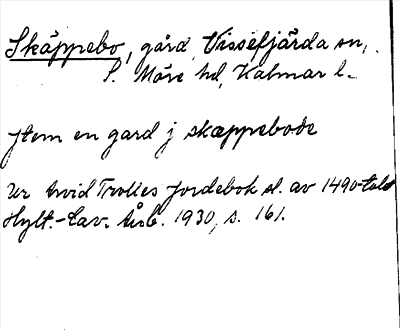 Skäppebo, gård, Vissefjärda sn,
S. Möre hd, Kalmar l.
Jtem en gard j skæppebode
Ur Arvid Trolles jordebok sl. av 1490-talet
Hylt.-Cav. Årsb. 1930, s. 161.